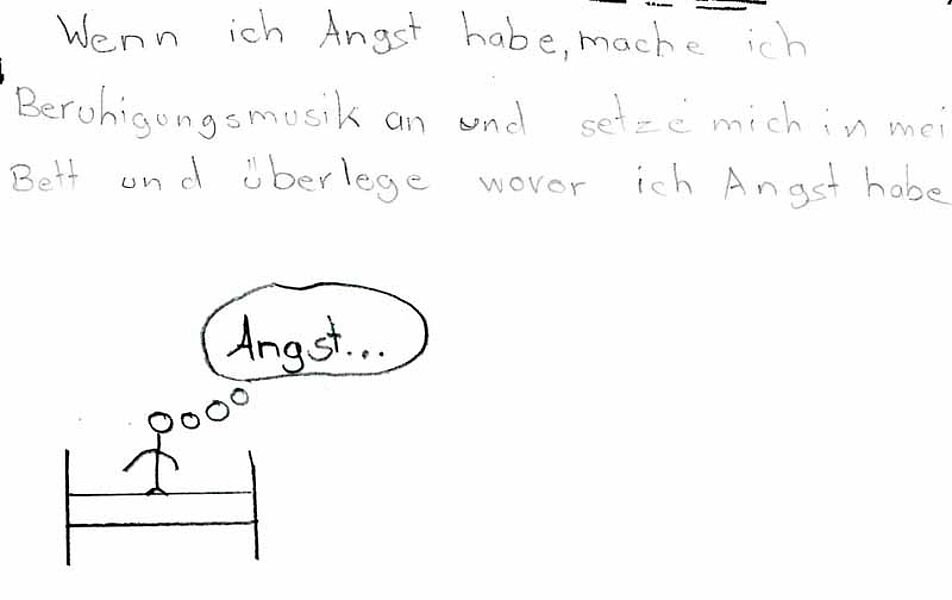 Wenn ich Angst habe, mache ich
Beruhigungsmusik an und setze mich in mei
Bett und überlege wovor ich Angst habe
Angst...